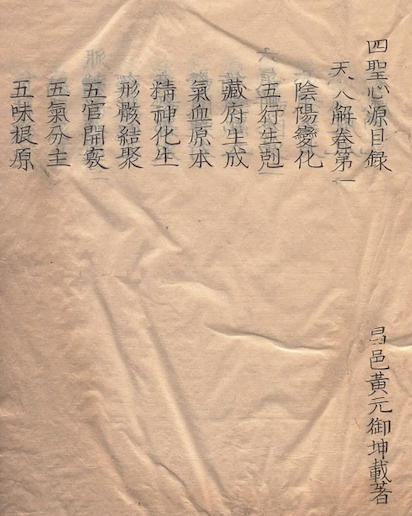 四聖心源目録
昌邑黃元御坤載著
天人解卷第一
陰陽變化
五行生剋
藏府生成
氣血原本
精神化生
形骸結聚
五官開竅
五氣分主
五味根原